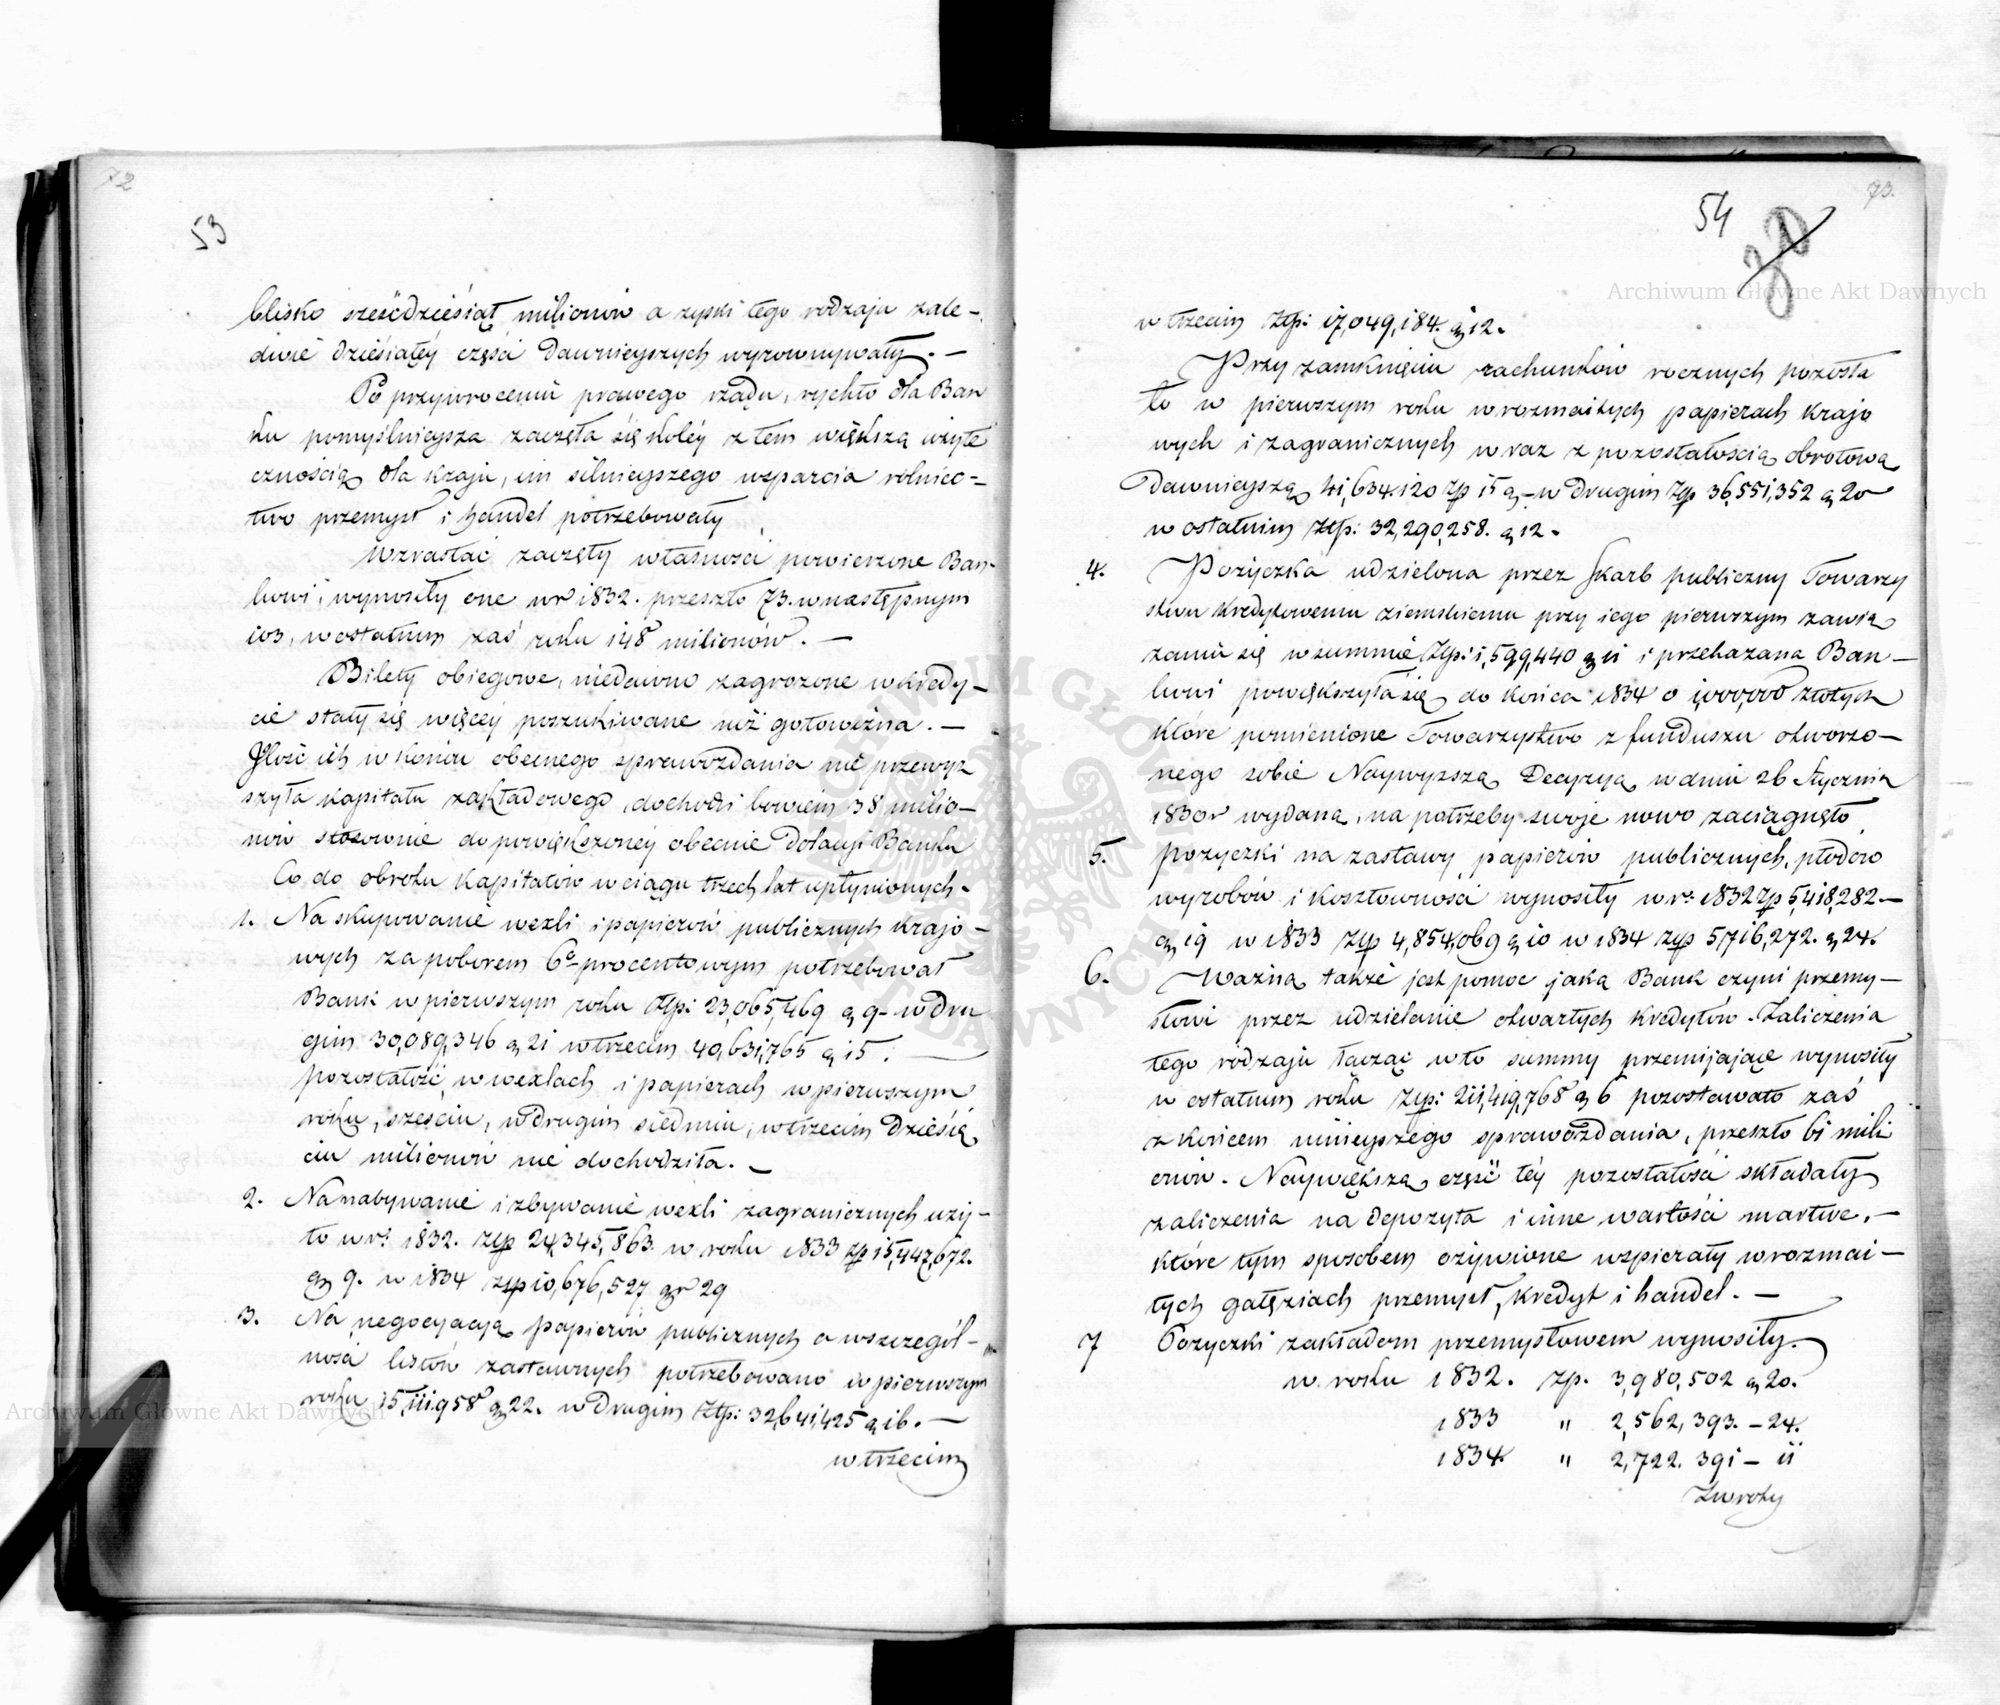 72
53
blisko sześćdziesiąt milionów a zyski tego rodzaju zale-
dwie dziesiątéy części dawnieyszych wyrownywały. —
Po przywroceniu prawego rządu, rychło dla Ban
ku pomyślnieysza zaczęła się koléy z tem większą użyte
cznością dla kraju, im silnieyszego wsparcia rolnic=
two przemysł i handel potrzebowały
Wzrastać zaczęły własności powierzone Ban-
kowi, wynosiły one w r 1832. przeszło 73. w następnym
103, w ostatnim zaś roku 148 milionów. —
Bilety obiegowe, niedawno zagrożone w kredy-
cie stały się więcéy poszukiwane niż gotowizna. —
Jlość ich w końcu obecnego sprawozdania nie przewyż
szyła kapitału zakładowego, dochodzi bowiem 38 milio-
nów stosownie do powiększonéy obecnie Dotacyi Banku
Co do obrotu kapitałów w ciągu trzech lat upłynionych.
1. Na skupowanie wexli i papierów publicznych krajo-
wych za poborem 6º procentowym potrzebował
Bank w pierwszym roku Złp: 23,065,469 g 9 - w dru
gim 30,089,346 g 21 w trzecim 40,631,765 g 15. —
pozostałość w wexlach i papierach w pierwszym
roku, sześciu, w drugim siedmiu, w trzecim dziesię
ciu milionów nie dochodziła. —
2. Na nabywanie i zbywanie wexli zagranicznych uży-
to w r: 1832. złp 24,345,863. w roku 1833 złp 15,447,672.
gr 9. w 1834 złp 10,676,527 gr 29
3. Na negocyacyą papierów publicznych a w szczegól-
ności listów zastawnych potrzebowano w pierwszym
roku 15,111,958 gr 22. w drugim Złp: 32,641,425 g 16. —
w trzecim
73.
54
30
w trzecim Złp: 17,049,184. g 12.
Przy zamknięciu rachunków rocznych pozosta
ło w pierwszym roku w rozmaitych papierach krajo
wych i zagranicznych wraz z pozostałością obrotową
dawnieyszą 41,634,120 złp 15 g - w drugim złp 36,551,352 g 20
w ostatnim Złp: 32,290,258. g 12.
4. Pożyczka udzielona przez Skarb publiczny Towarzy
stwu kredytowemu ziemskiemu przy iego pierwszym zawią
zaniu się w summie Złp: 1,599,440 g 11 i przekazana Ban-
kowi powiększyła się do końca 1834 o 1,000,000 złotych
które pomienione Towarzystwo z funduszu otworzo-
nego sobie Naywyższą Decyzyą w dniu 26 Stycznia
1830 r wydaną, na potrzeby swoje nowo zaciągnęło
5. pożyczki na zastawy papierów publicznych, płodów
wyrobów i kosztowności wynosiły w r: 1832 złp 5,418,282.-
g 19 w 1833 złp 4,854,069 g 10 w 1834 złp 5,716,272. g 24.
6. Ważną także jest pomoc jaką Bank czyni przemy-
słowi przez udzielanie otwartych kredytów. Zaliczenia
tego rodzaju łącząc w to summy przemijające wynosiły
w ostatnim roku Złp: 211,419,768 g 6 pozostawało zaś
z końcem ninieyszego sprawozdania, przeszło 61 mili
onów. Naywiększą część téy pozostałości składały
zaliczenia na depozyta i inne wartości martwe, —
które tym sposobem ożywione wspierały w rozmai-
tych gałęziach przemysł, kredyt i handel. —
7 Pożyczki zakładom przemysłowem wynosiły.
w roku 1832. złp. 3,980,502 g 20.
1833 " 2,562,393. - 24.
1834 " 2,722.391 - 11
Zwroty
Archiwum Główne Akt Dawnych
Archiwum Główne Akt Dawnych
ARCHIWUM GŁÓWNE AKT DAWNYCH